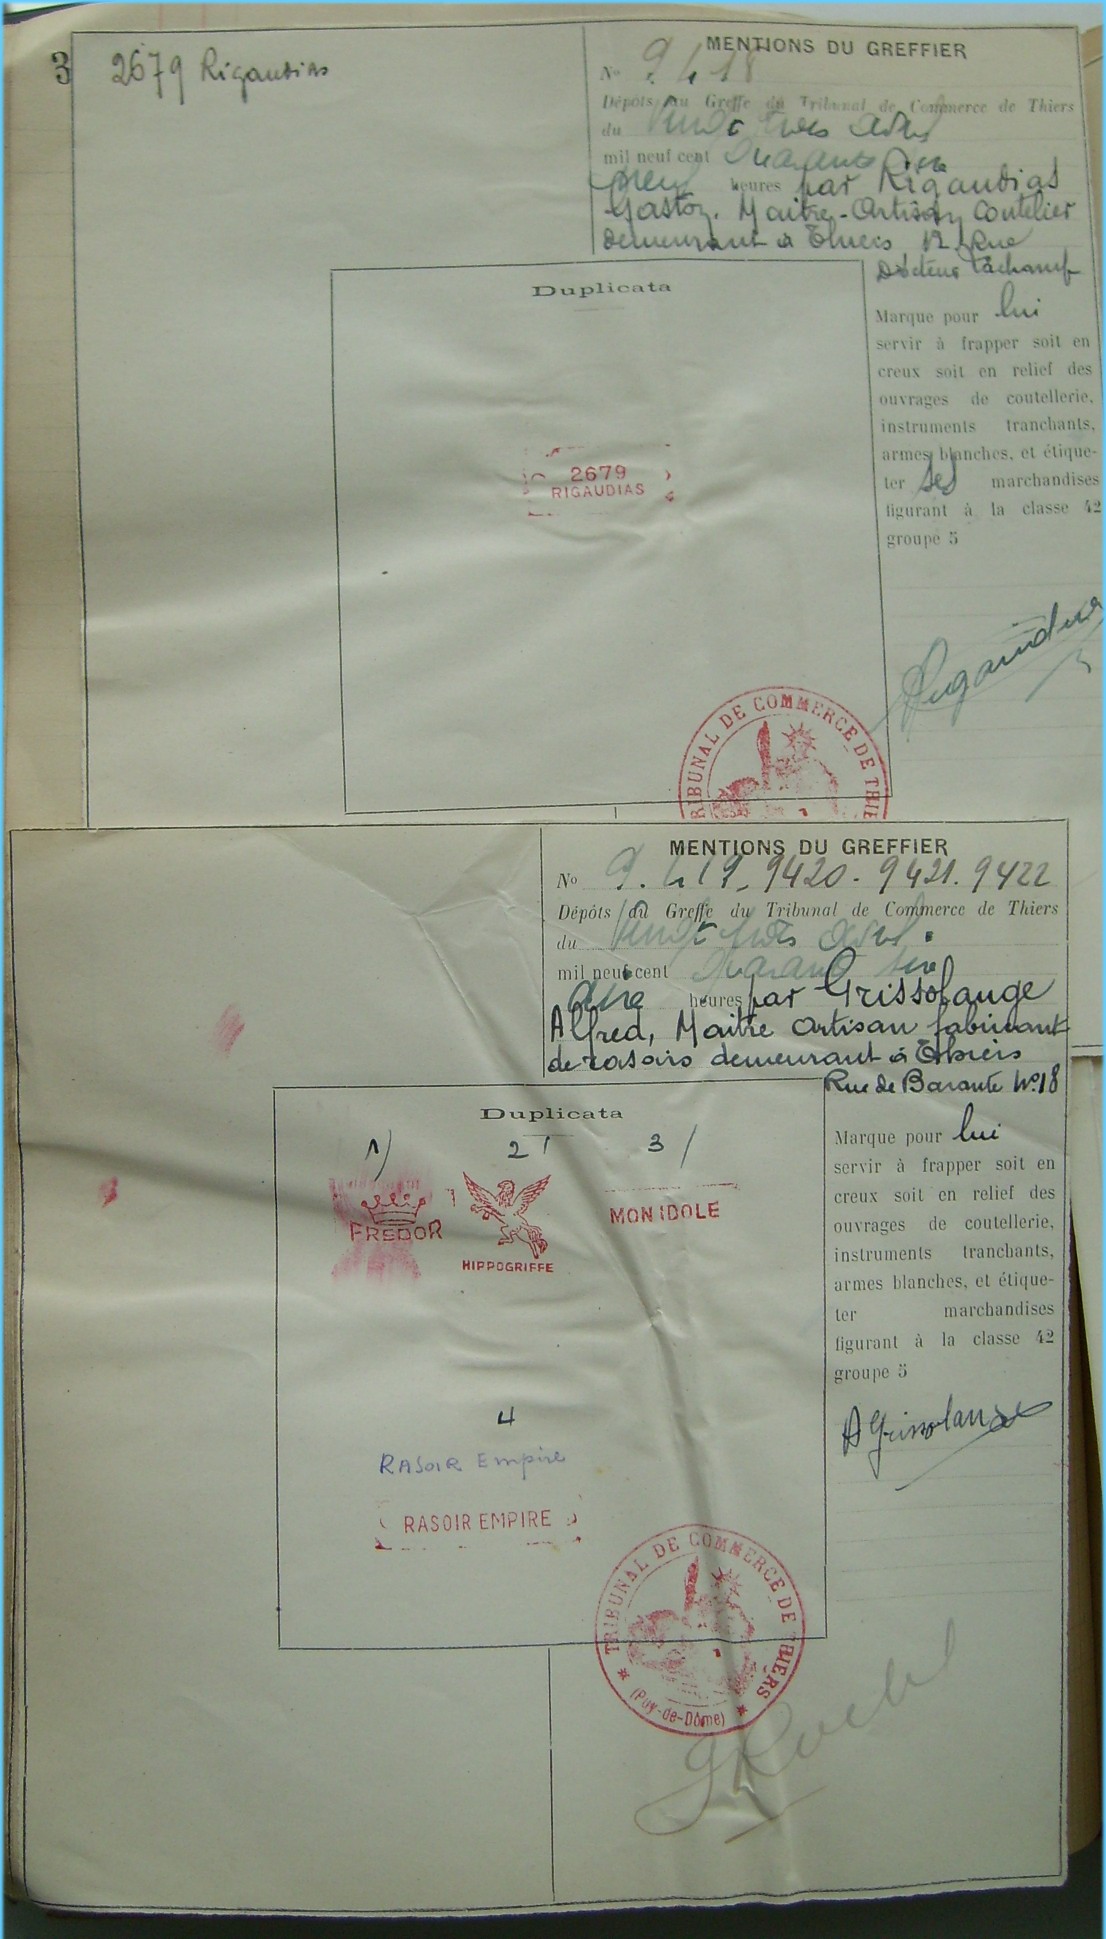 3
2679 Rigaudias
MENTIONS DU GREFFIER
No 9.418
Dépôts du Greffe du Tribunal de Commerce de Thiers
du Vingt trois avril
mil neuf cent Quarante six
neuf heures par Rigaudias
Gaston. Maitre-Artisan Coutelier
demeurant à Thiers 12 Rue
Docteur Lachamp
Duplicata
Marque pour lui
servir à frapper soit en
creux soit en relief des
ouvrages de coutellerie,
instruments tranchants,
armes blanches, et étique-
ter ses marchandises
figurant à la classe 42
groupe 5
2679
RIGAUDIAS
Rigaudias
TRIBUNAL DE COMMERCE DE THIE
MENTIONS DU GREFFIER
No 9.419. 9420. 9421. 9422
Dépôts du Greffe du Tribunal de Commerce de Thiers
du Vingt trois avril
mil neuf cent Quarante six
heures par Grissolange
Alfred, Maitre artisan fabricant
de rasoirs demeurant à Thiers
Rue de Barante No 18
Duplicata
1) 2) 3)
FREDOR
HIPPOGRIFFE
MON IDOLE
4
RASOIR Empire
RASOIR EMPIRE
Marque pour lui
servir à frapper soit en
creux soit en relief des
ouvrages de coutellerie,
instruments tranchants,
armes blanches, et étique-
ter marchandises
figurant à la classe 42
groupe 5
A Grissolange
TRIBUNAL DE COMMERCE DE THIERS
(Puy-de-Dôme)